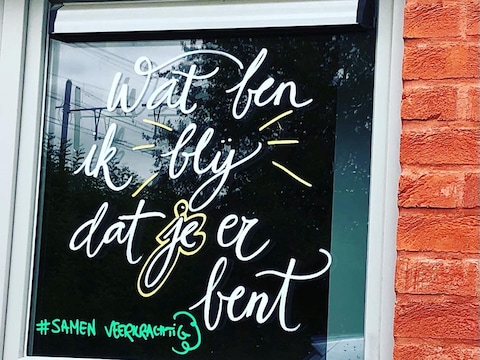 Wat ben
ik blij
dat je er
bent
#SAMEN VEERKRACHTIG